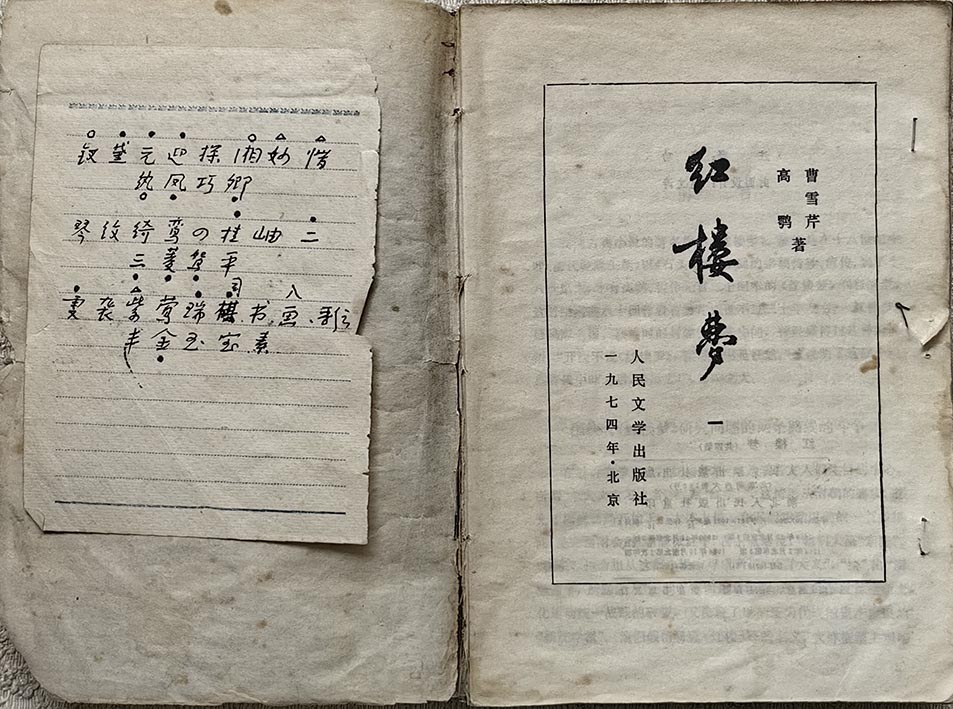 钗黛元迎探湘妙惜
纨凤巧卿
琴纹绮鸾の桂岫二
三菱鸳平
司
袭紫莺 棋书画
金玉宝素
曹雪芹
高鹗 著
红楼梦
一
人民文学出版社
一九七四年·北京